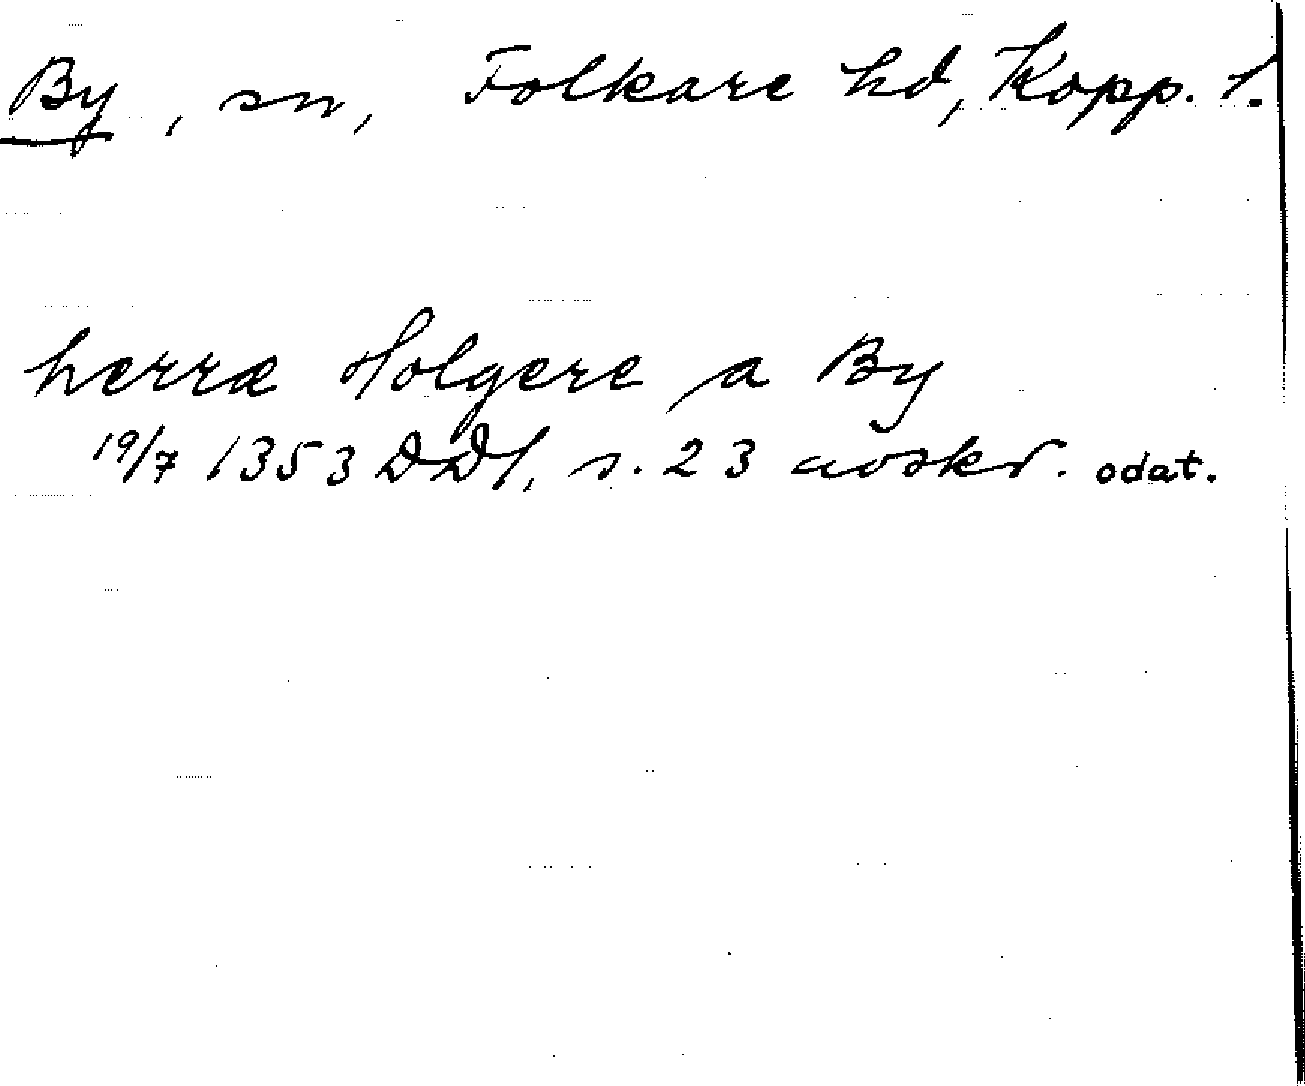 By, sn, Folkare hd, Kopp. l.
hærræ Holgere a By
19/7 1353 DDl, s. 23 avskr. odat.